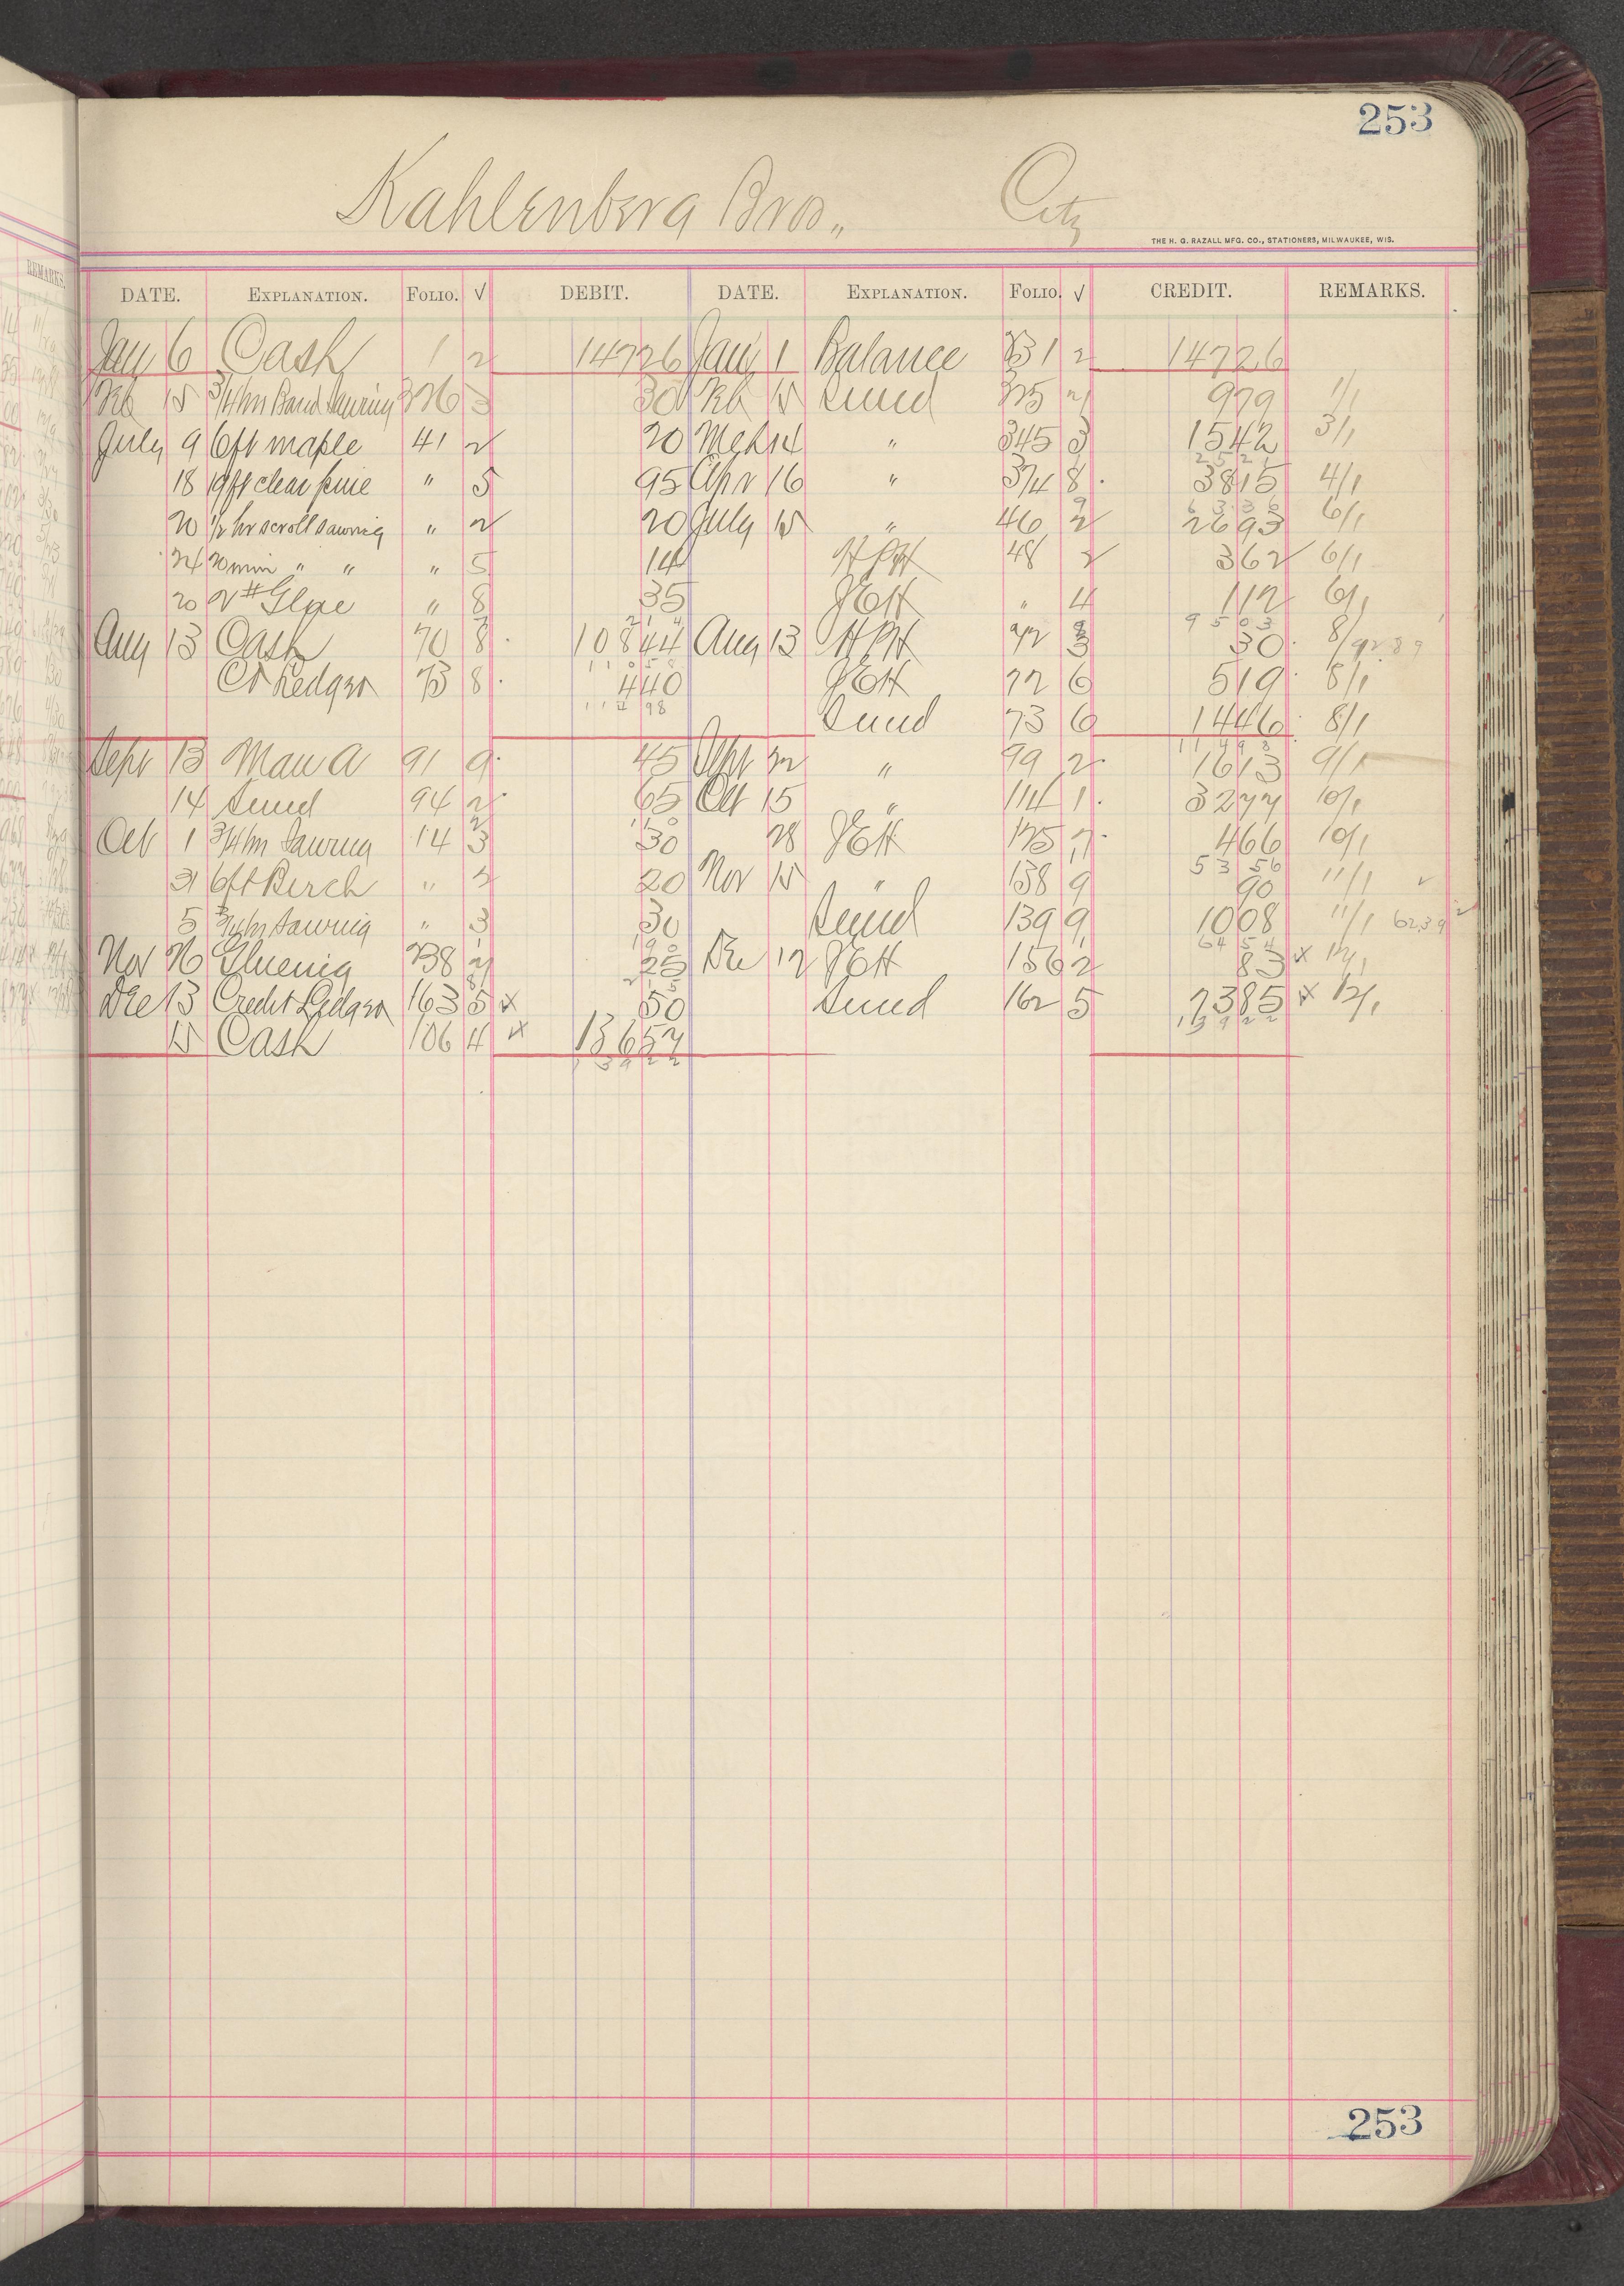 253
Kahlenberg Bros,, City
THE H. G. RAZALL MFG. CO., STATIONERS, MILWAUKEE, WIS.
DATE. EXPLANATION. FOLIO. √ DEBIT. DATE. EXPLANATION. FOLIO. √ CREDIT. REMARKS.
Jan 6 Cash 1 2 147 26 Jan 1 Balance 831 2 147 26
Feb 15 3/4 hr Band Sawing 326 3 30 Feb 15 Sund 325 9 79 1/1
July 9 6ft maple 41 2 20 Mch 14 " 345 3 15 42 3/1
18 19ft clear pine " 5 95 Apr 16 " 374 8 38 15 4/1
20 1/2 hr scroll sawing " 2 20 July 15 " 46 2 26 93 6/1
24 20 min " " " 5 14 48 2 3 62 6/1
20 2# Glue " 8 35 " 4 1 12 6/1
Aug 13 Cash 70 8 108 44 Aug 13 72 3 30 8/ 92.89
Cr Ledger 73 8 4 40 72 6 5 19 8/1
1 1 4 98 Sund 73 6 14 46 8/1
Sept 13 Man a 91 9 45 Sept 22 " 99 2 16 13 9/1
14 Sund 94 2 65 Oct 15 " 114 1 32 77 10/1
Oct 1 3/4 hr Sawing 14 3 30 28 125 7 4 66 10/1
31 6ft Birch " 2 20 Nov 15 " 138 9 90 11/1
5 3/4 hr Sawing " 3 30 Sund 139 9 10 08 11/1 62.39
Nov 26 Glueing 238 2 25 Dec 12 156 2 83 x 12/1
Dec 13 Credit Ledger 163 5 x 50 Sund 162 5 73 85 x 12/1
15 Cash 106 4 x 136 57 1 3 9 2 2
1 3 9 2 2
253